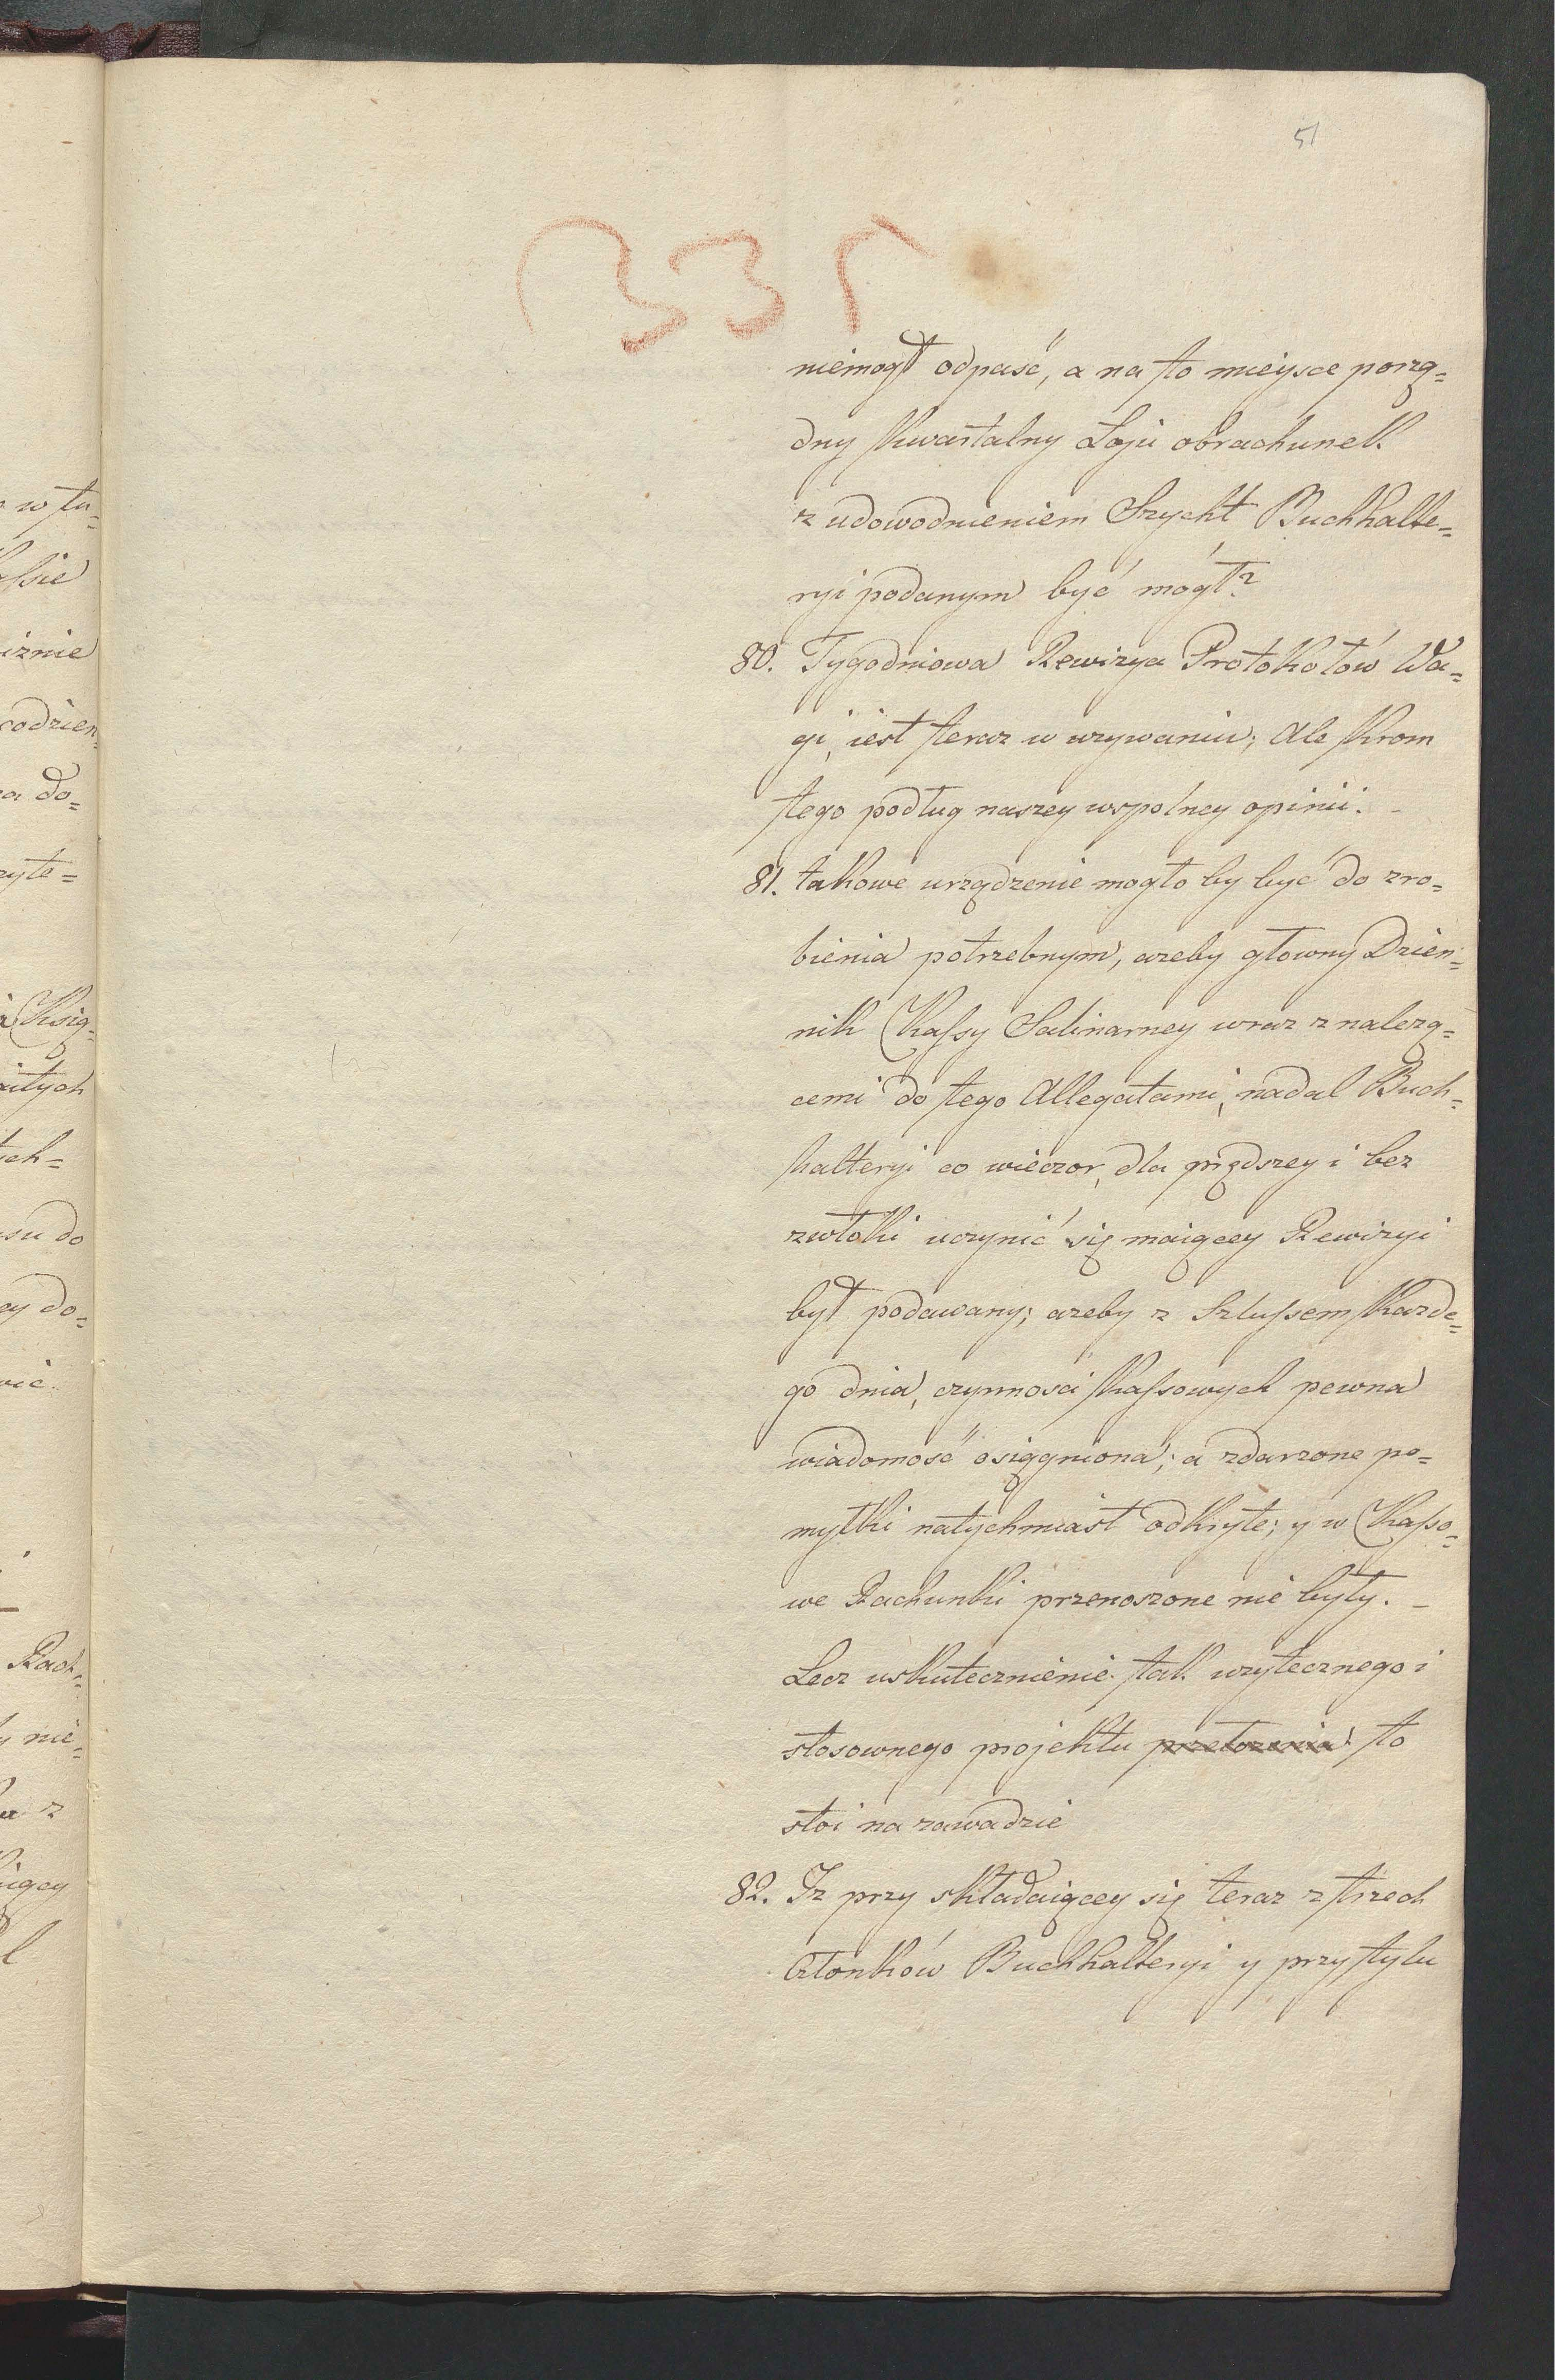 51
335
niemogł odpaść, a na to mieysce porzą=
dny kwartalny Łoju obrachunek
z udowodnieniem Szycht Buchhalte=
ryi podanym być mógł?
80. Tygodniowa Rewizya Protokołów Wa=
gi, iest teraz w uzywaniu; Ale krom
tego podług naszey wspolney opinii. -
81. takowe urządzenie mogło by być do zro=
bienia potrzebnym, azeby głowny Dzien=
nik Kassy Salinarney wraz z nalezą=
cemi do tego Allegatami, nadal Buch=
halteryi co wieczor, dla prędszey i bez
zwłoki uczynić się maiącey Rewizyi
był podawany; azeby z Szlussem kazde=
go dnia, czynnosci kassowych pewna
wiadomość osiągniona; a zdarzone po=
myłki natychmiast odkryte; y w Kasso=
we Rachunki przenoszone nie były. -
Lecz uskutecznienie tak uzytecznego i
stosownego projektu przełozenia to
stoi na zawadzie
82. Iz przy składaiącey się teraz z trzech
Członków Buchhalteryi y przy stylu
w tu=
ssie
iznie
codzien=
a do=
zyte=
Ksią=
ch=
su do
ey do=
Rach=
nie=
a z
iącey
l